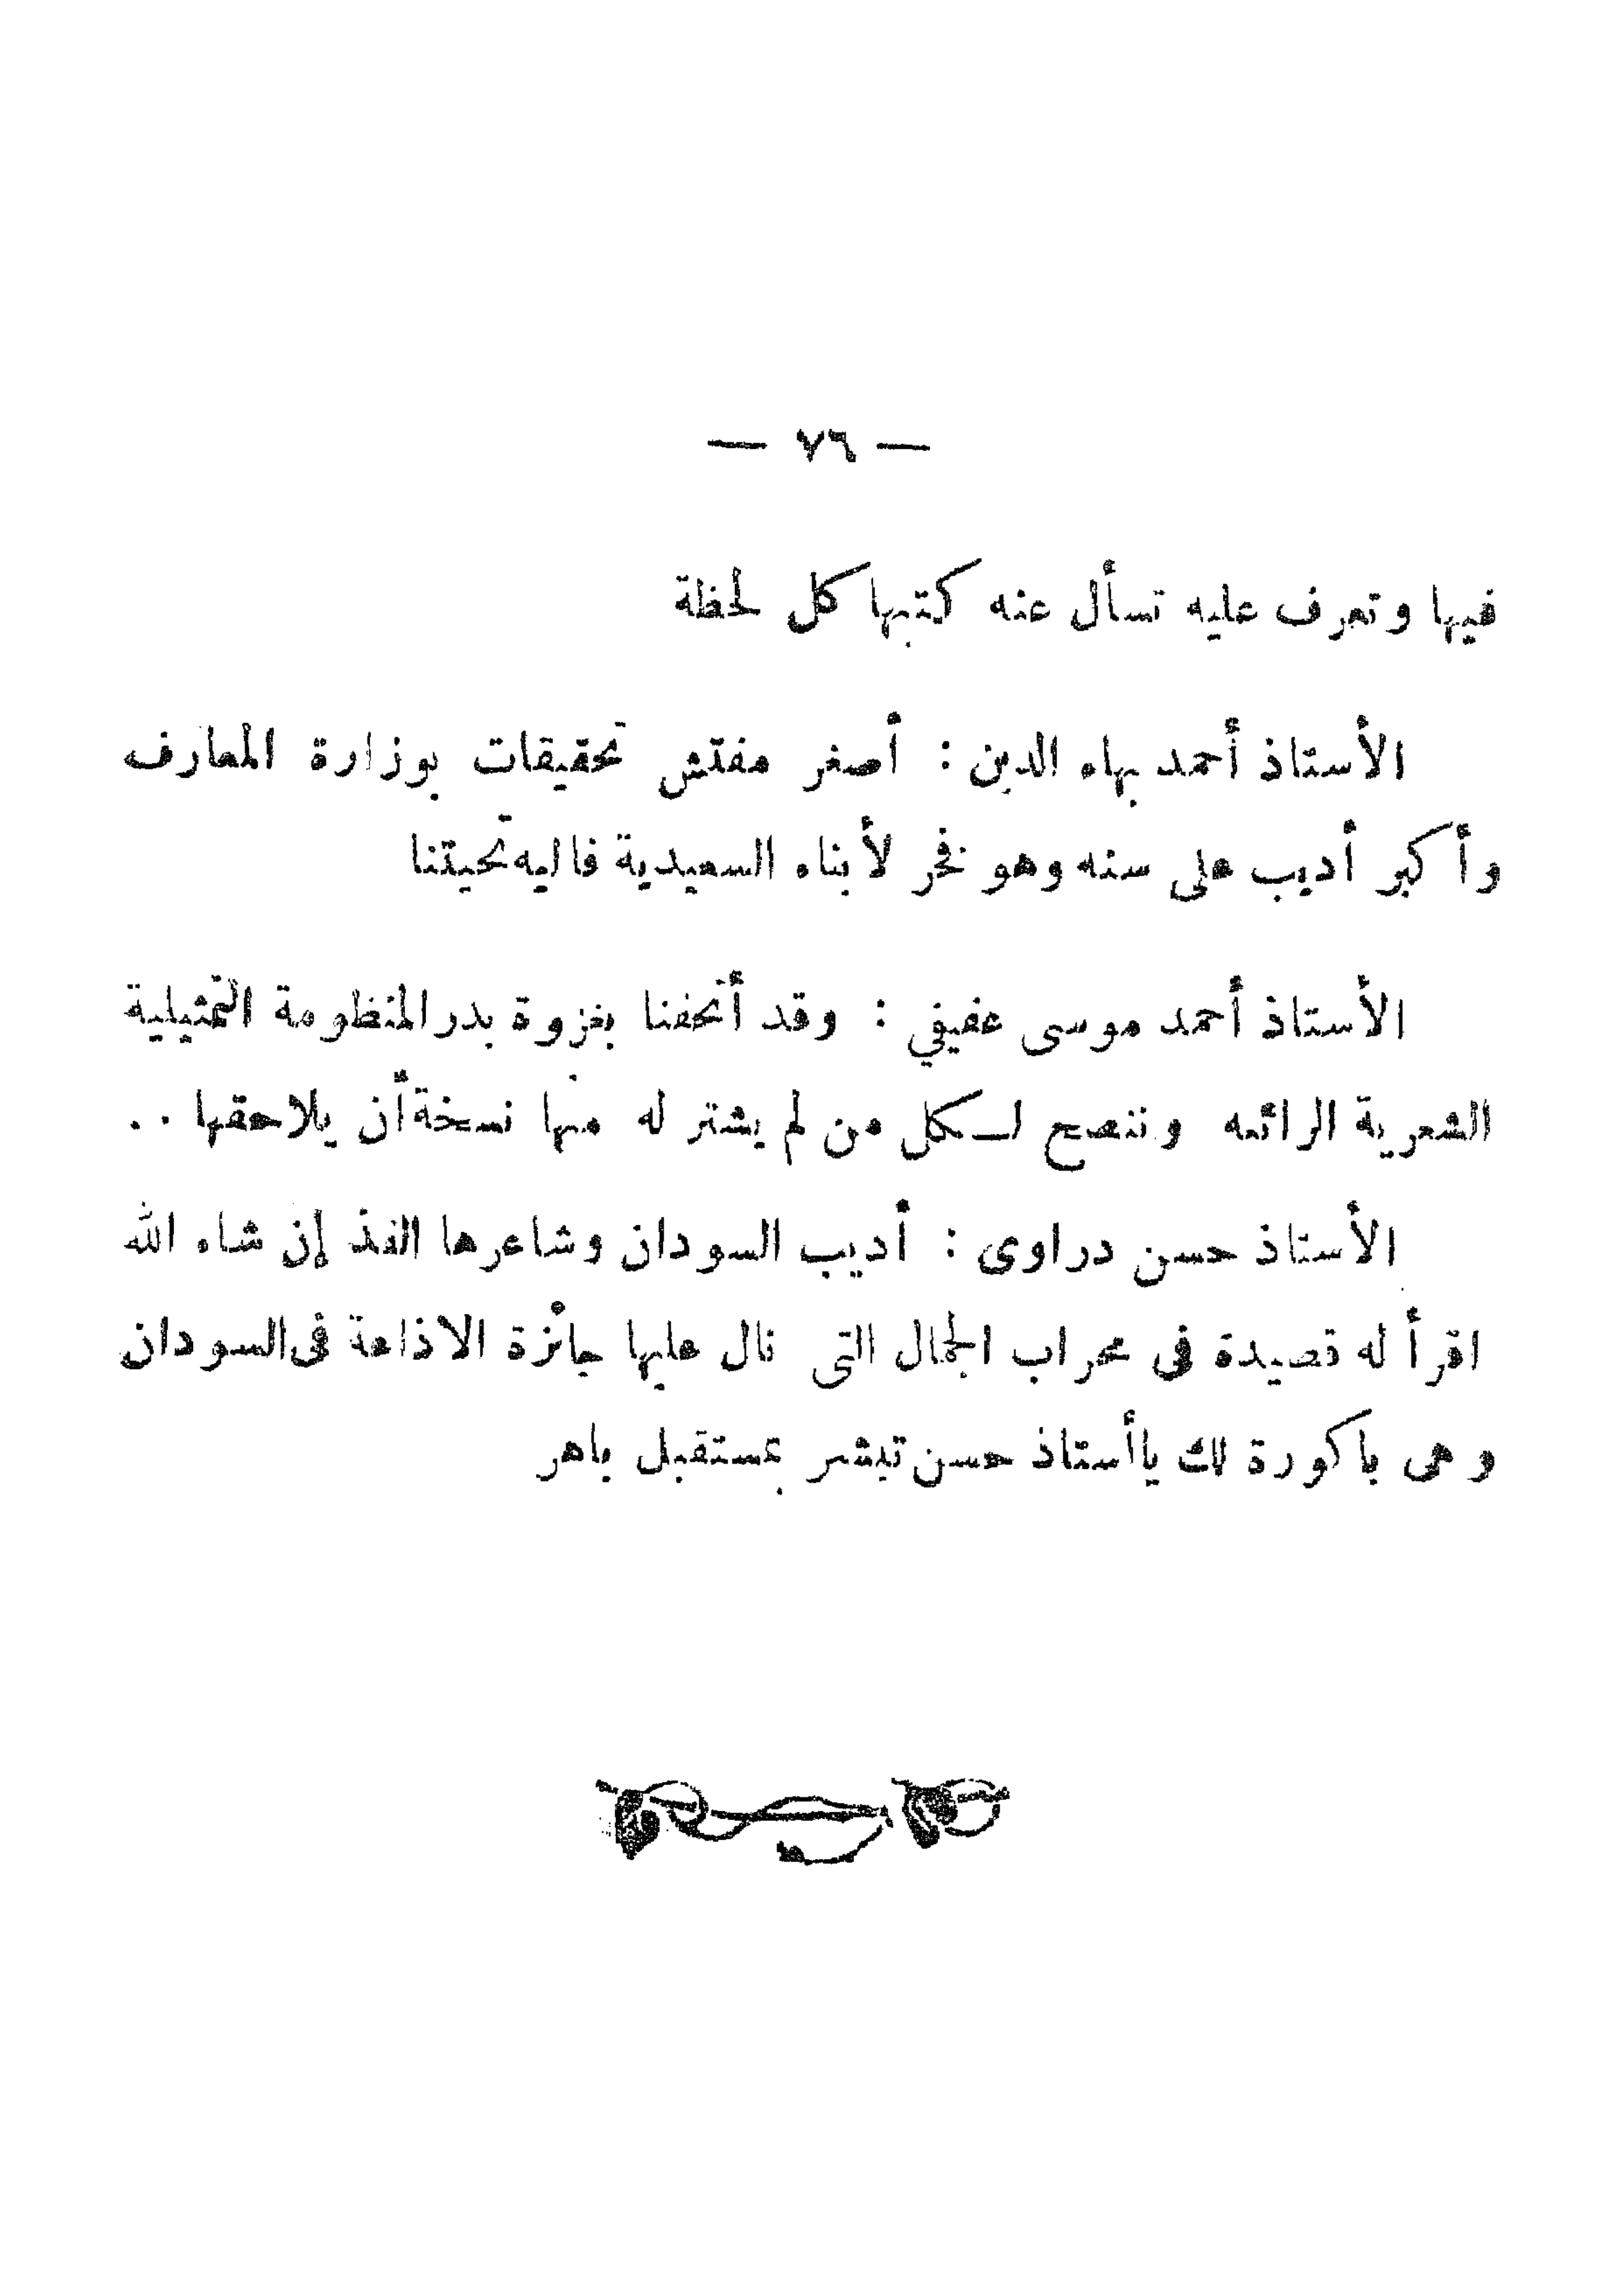 — ٧٦ —
فيها وتعرف عليه تسأل عنه كتبها كل لحظة
الأستاذ أحمد بهاء الدين : أصغر مفتش تحقيقات بوزارة المعارف
وأكبر أديب على سنه وهو فخر لأبناء السعيدية فاليه تحيتنا
الأستاذ أحمد موسى عفيفي : وقد أتحفنا بغزوة بدر المنظومة التمثيلية
الشعرية الرائعه وننصح لكل من لم يشتر له منها نسخة أن يلاحقها ..
الأستاذ حسن دراوى : أديب السودان وشاعرها الفذ إن شاء الله
اقرأ له قصيدة فى محراب الجمال التى نال عليها جائزة الاذاعة فى السودان
وهى باكورة لك يا أستاذ حسن تبشر بمستقبل باهر